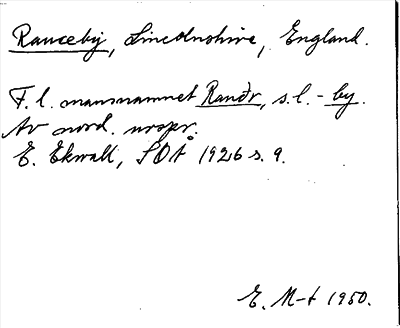 Rauceby, Lincolnshire, England.
F. l. mansnamnet Rauðr, s.l. -by.
Av nord. urspr.
E. Ekwall, SOÅ 1926 s. 9.
E. M-t 1950.